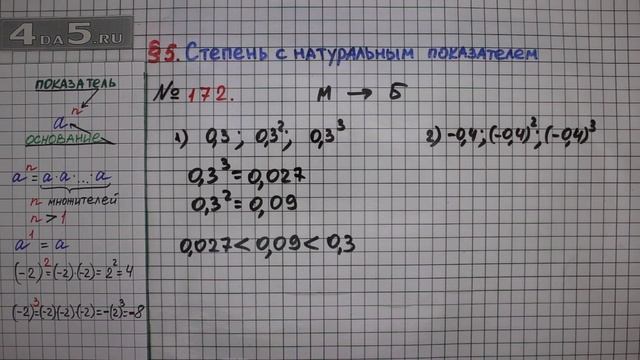 4DA5.RU
§5. Степень с натуральным показателем
показатель
aⁿ
основание
aⁿ = a·a·...·a
n множителей
n > 1
a¹ = a
(-2)² = (-2)·(-2) = 2² = 4
(-2)³ = (-2)(-2)(-2) = -(2)³ = -8
№ 172. М → Б
1) 0,3 ; 0,3² ; 0,3³
0,3³ = 0,027
0,3² = 0,09
0,027 < 0,09 < 0,3
2) -0,4 ; (-0,4)² ; (-0,4)³